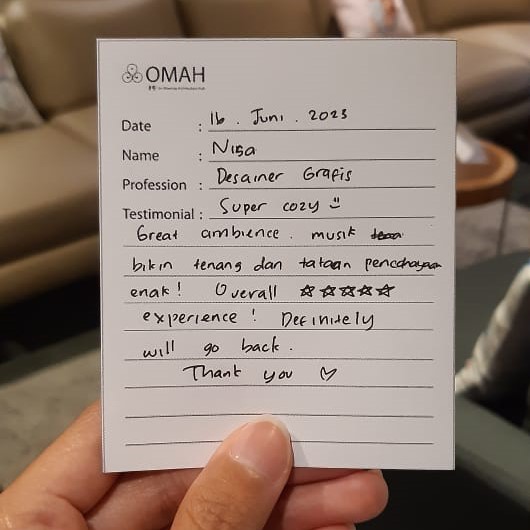 OMAH
Date : 16 . Juni . 2023
Name : Nisa
Profession : Desainer Grafis
Testimonial : Super cozy
Great ambience . musik
bikin tenang dan tataan pencahayaan
enak ! Overall ☆☆☆☆☆
experience ! Definitely
will go back .
Thank you ♡